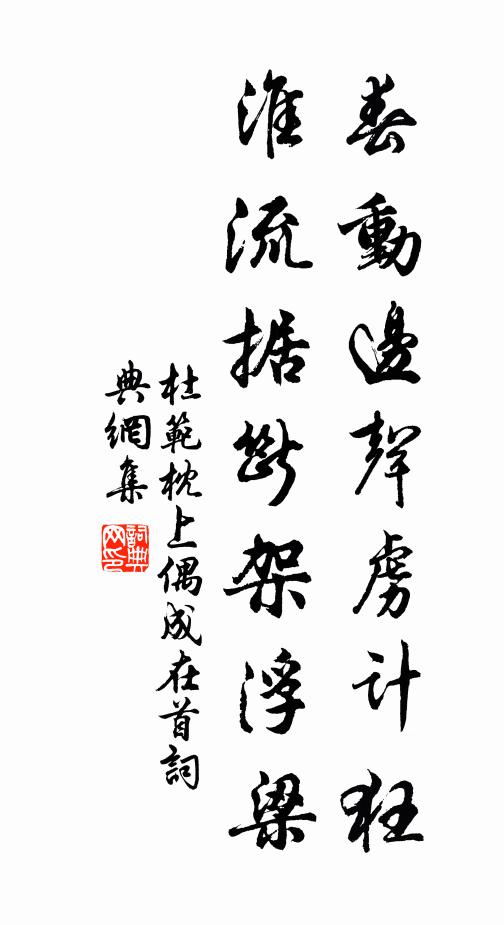 春動邊聲虜計狂
淮流据斷架浮梁
杜範枕上偶成在首詞
典網集
詞典
网印